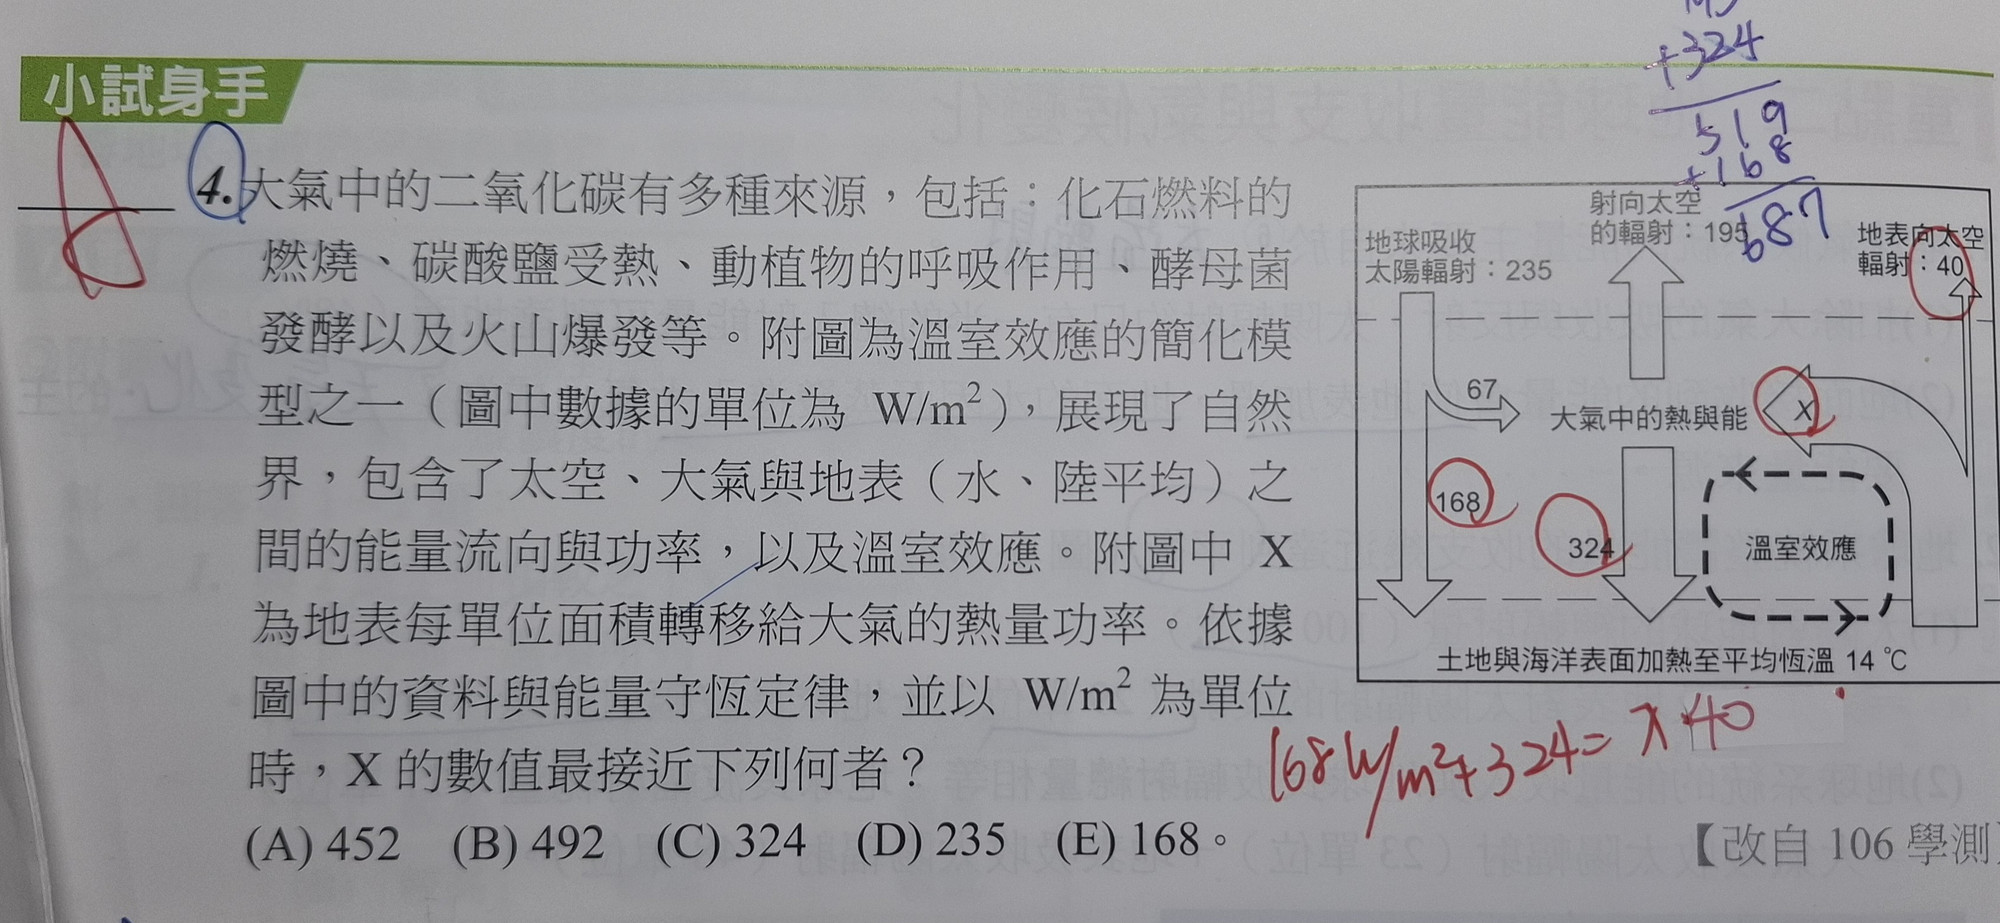 +324
519
+168
687
小試身手
4.大氣中的二氧化碳有多種來源，包括：化石燃料的
燃燒、碳酸鹽受熱、動植物的呼吸作用、酵母菌
發酵以及火山爆發等。附圖為溫室效應的簡化模
型之一（圖中數據的單位為 W/m²），展現了自然
界，包含了太空、大氣與地表（水、陸平均）之
間的能量流向與功率，以及溫室效應。附圖中 X
為地表每單位面積轉移給大氣的熱量功率。依據
圖中的資料與能量守恆定律，並以 W/m² 為單位
時，X 的數值最接近下列何者？
(A) 452 (B) 492 (C) 324 (D) 235 (E) 168。
【改自 106 學測】
地球吸收
太陽輻射：235
射向太空
的輻射：195
地表向太空
輻射：40
67
大氣中的熱與能
X
168
324
溫室效應
土地與海洋表面加熱至平均恆溫 14 ℃
168 W/m²+324= X+40